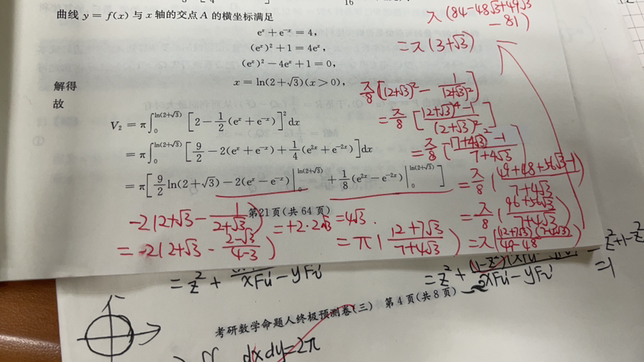 曲线 y = f(x) 与 x 轴的交点 A 的横坐标满足
eˣ + e⁻ˣ = 4,
(eˣ)² + 1 = 4eˣ,
(eˣ)² − 4eˣ + 1 = 0,
解得 x = ln(2+√3)(x > 0),
故
V₂ = π∫₀^{ln(2+√3)} [2 − 1/2(eˣ + e⁻ˣ)]² dx
= π∫₀^{ln(2+√3)} [9/2 − 2(eˣ + e⁻ˣ) + 1/4(e²ˣ + e⁻²ˣ)]dx
= π[9/2 ln(2+√3) − 2(eˣ − e⁻ˣ)|₀^{ln(2+√3)} + 1/8(e²ˣ − e⁻²ˣ)|₀^{ln(2+√3)}]
第21页(共 64 页)
π(84−48√3+49√3
−81)
= π(3+√3)
π/8[(2+√3)² − 1/(2+√3)²]
= π/8[((2+√3)⁴−1)/(2+√3)²]
= π/8[((7+4√3)²−1)/(7+4√3)]
= π/8(49+48+56√3−1)/(7+4√3)
= π/8(96+56√3)/(7+4√3)
= π((12+7√3)/(7+4√3))
= π((12+7√3)(7−4√3)/(49−48)
−2(2+√3 − 1/(2+√3))
= −2(2+√3 − (2−√3)/(4−3))
= +2·2√3 = 4√3
考研数学命题人终极预测卷(三) 第 4 页(共 8 页)
dxdy = 2π